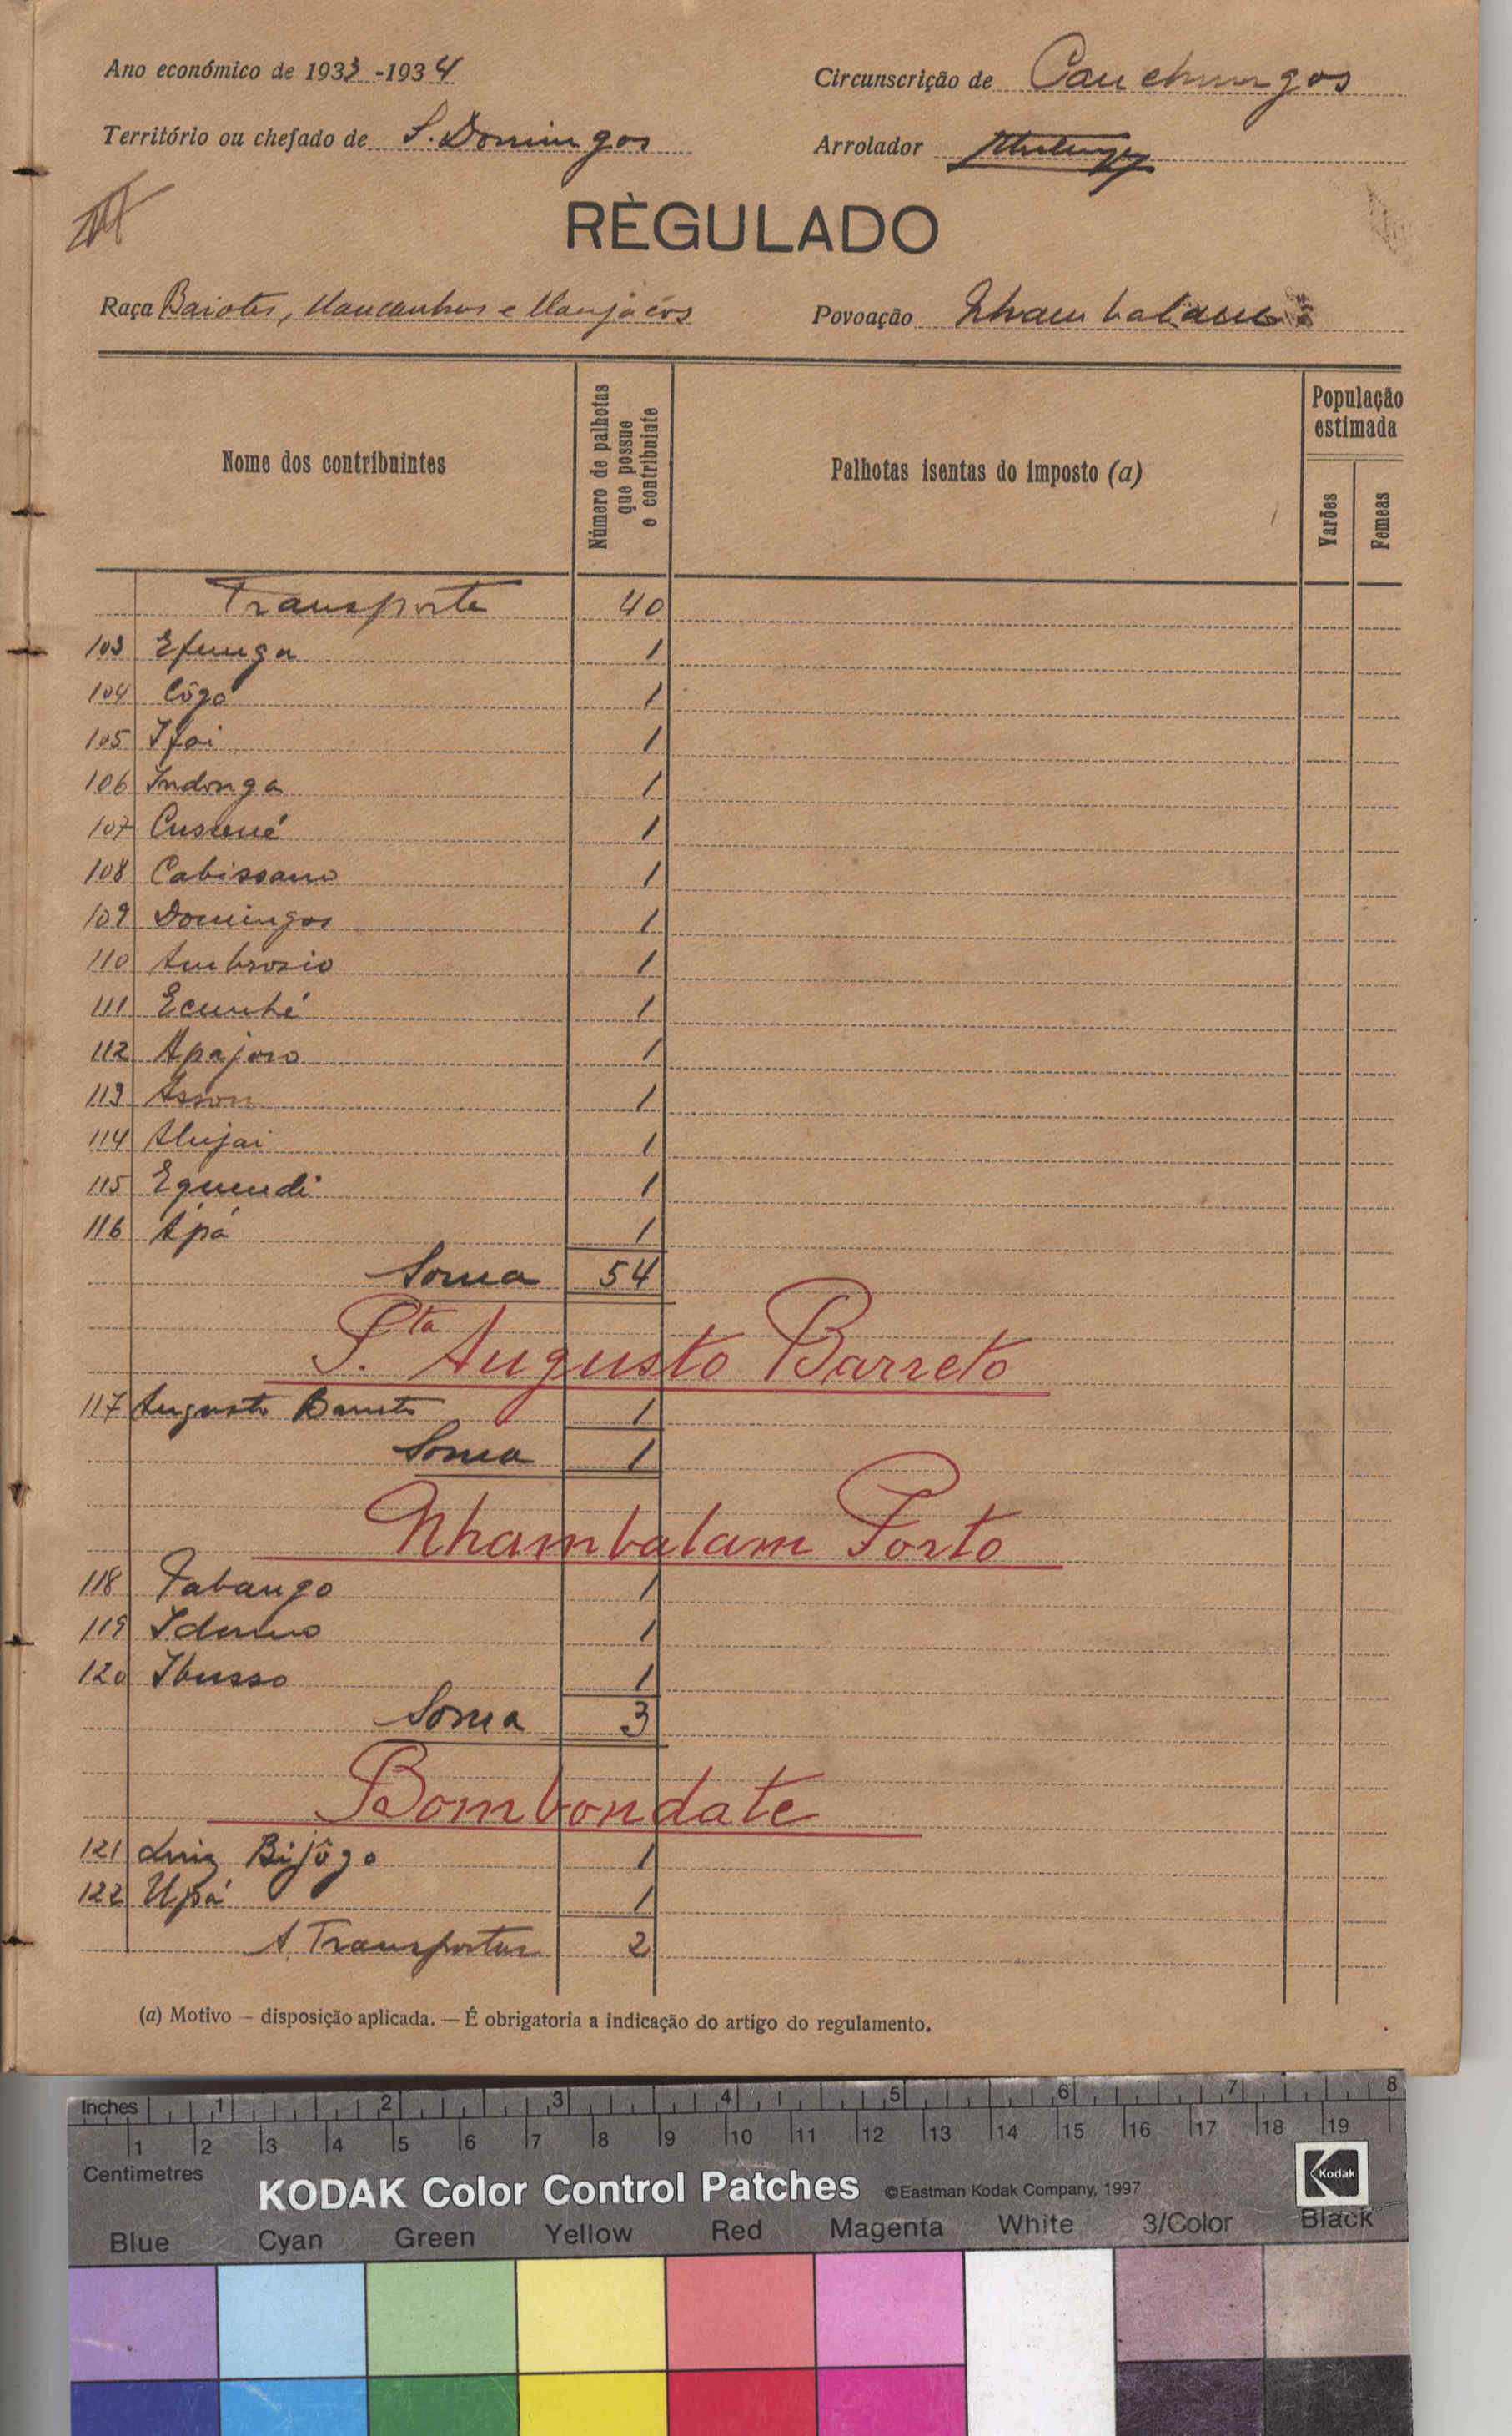 Ano económico de 1933-1934
Circunscrição de Canchungos
Território ou chefado de S. Domingos
Arrolador
RÈGULADO
Raça Baiotes, Mancanhos e Manjácos
Povoação Nhambalam
Nome dos contribuintes
Número de palhotas que possue o contribuinte
Palhotas isentas do imposto (a)
População estimada
Varões
Femeas
Transporte 40
103 Efunga 1
104 Côgo 1
105 Ifai 1
106 Indonga 1
107 1
108 Cabissano 1
109 Domingos 1
110 Ambrosio 1
111 Ecunhé 1
112 Apajoro 1
113 Asson 1
114 Alujai 1
115 Equendi 1
116 Apá 1
Soma 54
P.ta Augusto Barreto
117 Augusto Barreto 1
Soma 1
Nhambalam Porto
118 Tabango 1
119 1
120 Ibusso 1
Soma 3
Bombondate
121 Luiz Bijôgo 1
122 Upá 1
A Transportar 2
(a) Motivo — disposição aplicada. — É obrigatoria a indicação do artigo do regulamento.
Inches 1 2 3 4 5 6 7 8
1 2 3 4 5 6 7 8 9 10 11 12 13 14 15 16 17 18 19
Centimetres
KODAK Color Control Patches ©Eastman Kodak Company, 1997
Kodak
Blue Cyan Green Yellow Red Magenta White 3/Color Black